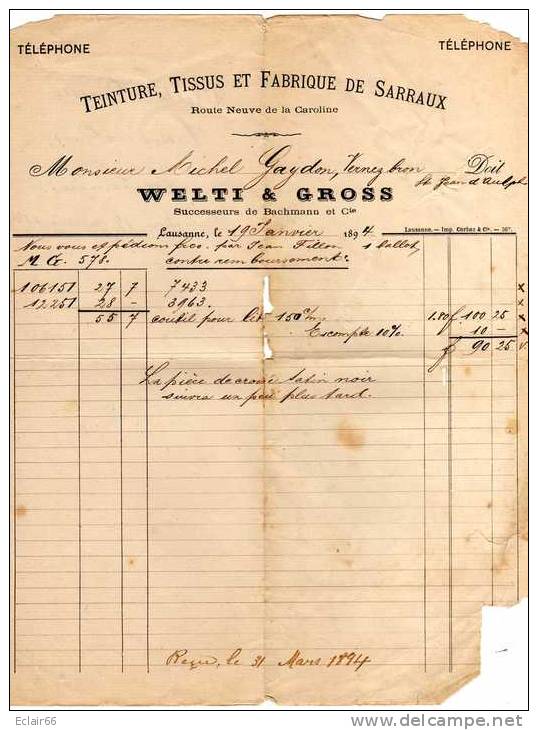 TÉLÉPHONE TÉLÉPHONE
TEINTURE, TISSUS ET FABRIQUE DE SARRAUX
Route Neuve de la Caroline
Monsieur Michel Gaydon, Vernez bron Doit
St Jean d'Aulph
WELTI & GROSS
Successeurs de Bachmann et Cie
Lausanne, le 19 Janvier 1894. Lausanne. — Imp. Corbaz & Cie.
Nous vous expédions fco. par Jean Fillon 1 ballot
M G. 578. contre remboursement:
106151 27 7 7433 x
12251 28 - 3963. x
55 7 coutil pour lit 150 c/m 1.80 f. 100 25 x
Escompte 10% 10 - x
f 90 25 v.
La pièce de croisé satin noir
suivra un peu plus tard.
Reçu, le 31 Mars 1894
Eclair66
www.delcampe.net